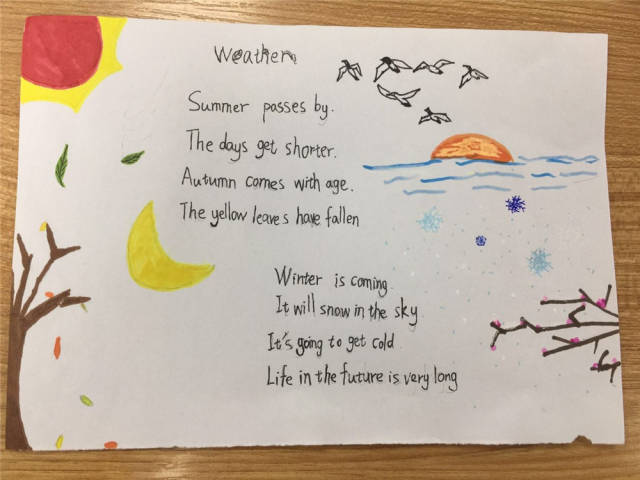 Weather
Summer passes by.
The days get shorter.
Autumn comes with age.
The yellow leaves have fallen
Winter is coming
It will snow in the sky
It's going to get cold
Life in the future is very long